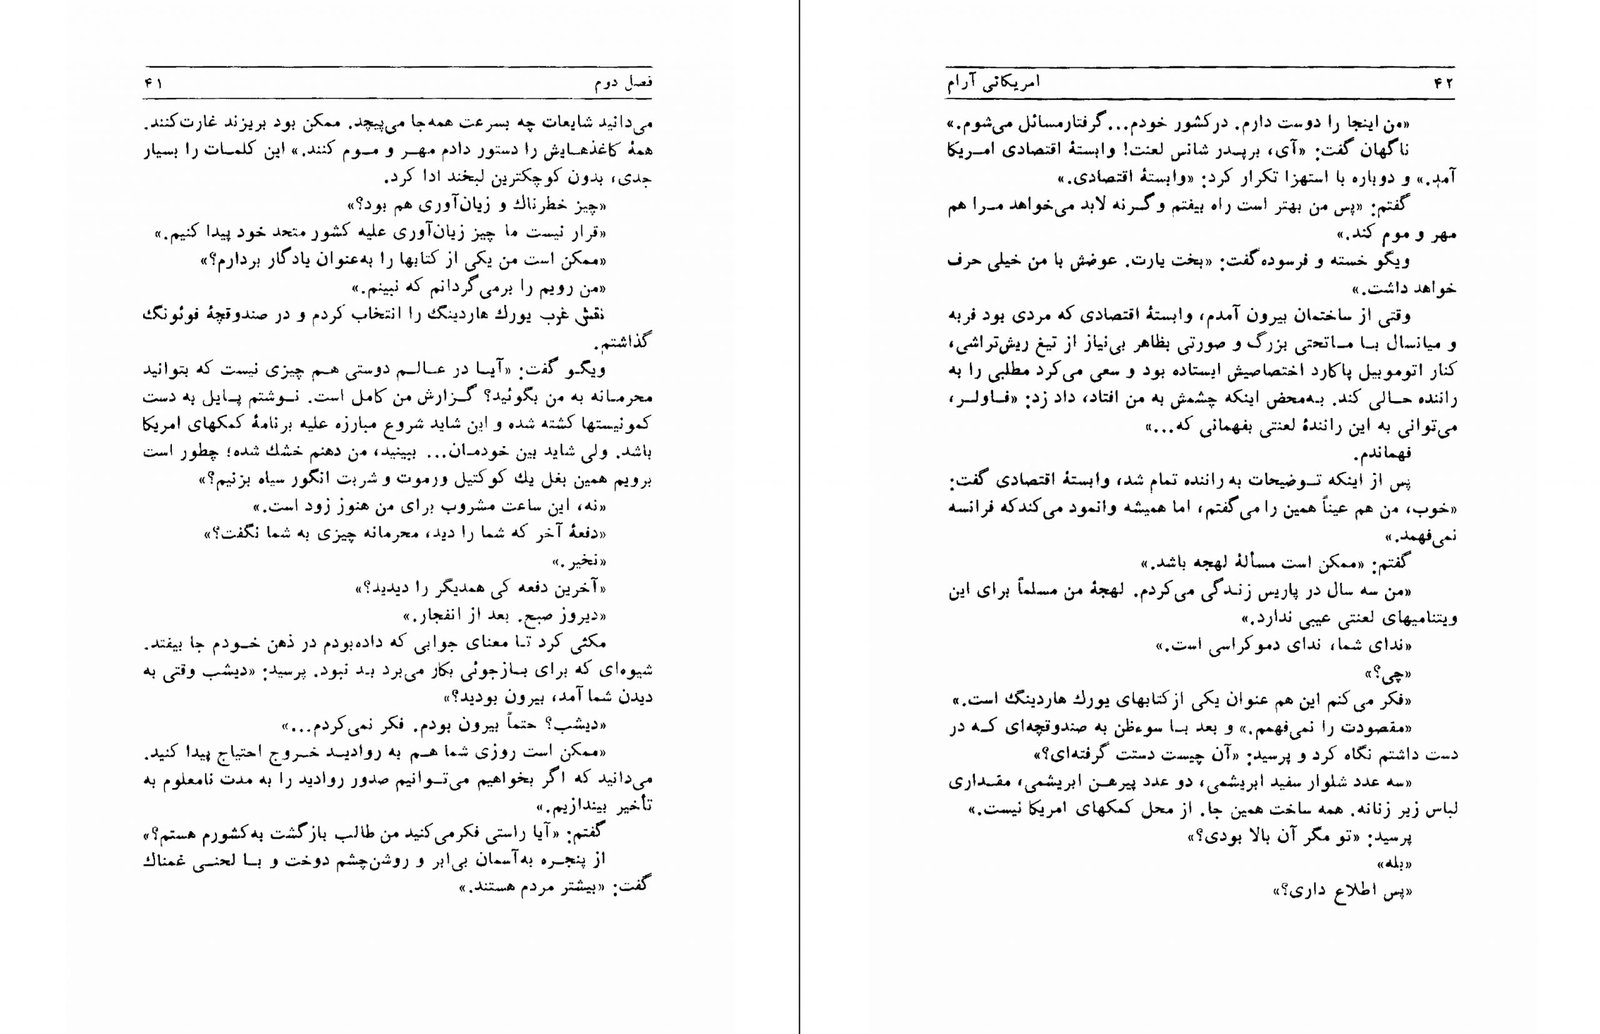 فصل دوم ۴۱
می‌دانید شایعات چه بسرعت همه‌جا می‌پیچد. ممکن بود بریزند غارت‌کنند.
همهٔ کاغذهایش را دستور دادم مهر و موم کنند.» این کلمات را بسیار
جدی، بدون کوچکترین لبخند ادا کرد.
«چیز خطرناك و زیان‌آوری هم بود؟»
«قرار نیست ما چیز زیان‌آوری علیه کشور متحد خود پیدا کنیم.»
«ممکن است من یکی از کتابها را به‌عنوان یادگار بردارم؟»
«من رویم را برمی‌گردانم که نبینم.»
نقش غرب یورك هاردینگ را انتخاب کردم و در صندوقچهٔ فوئونگ
گذاشتم.
ویگو گفت: «آیا در عالم دوستی هم چیزی نیست که بتوانید
محرمانه به من بگوئید؟ گزارش من کامل است. نوشتم پایل به دست
کمونیستها کشته شده و این شاید شروع مبارزه علیه برنامهٔ کمکهای امریکا
باشد. ولی شاید بین خودمان... ببینید، من دهنم خشك شده؛ چطور است
برویم همین بغل یك کوکتیل ورموت و شربت انگور سیاه بزنیم؟»
«نه، این ساعت مشروب برای من هنوز زود است.»
«دفعهٔ آخر که شما را دید، محرمانه چیزی به شما نگفت؟»
«نخیر.»
«آخرین دفعه کی همدیگر را دیدید؟»
«دیروز صبح. بعد از انفجار.»
مکثی کرد تا معنای جوابی که داده‌بودم در ذهن خودم جا بیفتد.
شیوه‌ای که برای بازجوئی بکار می‌برد بد نبود. پرسید: «دیشب وقتی به
دیدن شما آمد، بیرون بودید؟»
«دیشب؟ حتماً بیرون بودم. فکر نمی‌کردم...»
«ممکن است روزی شما هم به روادید خروج احتیاج پیدا کنید.
می‌دانید که اگر بخواهیم می‌توانیم صدور روادید را به مدت نامعلوم به
تأخیر بیندازیم.»
گفتم: «آیا راستی فکرمی‌کنید من طالب بازگشت به‌کشورم هستم؟»
از پنجره به‌آسمان بی‌ابر و روشن‌چشم دوخت و با لحنی غمناك
گفت: «بیشتر مردم هستند.»
امریکائی آرام ۴۲
«من اینجا را دوست دارم. درکشور خودم...گرفتارمسائل می‌شوم.»
ناگهان گفت: «آی، برپدر شانس لعنت! وابستهٔ اقتصادی امریکا
آمد.» و دوباره با استهزا تکرار کرد: «وابستهٔ اقتصادی.»
گفتم: «پس من بهتر است راه بیفتم وگرنه لابد می‌خواهد مرا هم
مهر و موم کند.»
ویگو خسته و فرسوده‌گفت: «بخت یارت. عوضش با من خیلی حرف
خواهد داشت.»
وقتی از ساختمان بیرون آمدم، وابستهٔ اقتصادی که مردی بود فربه
و میانسال با ماتحتی بزرگ و صورتی بظاهر بی‌نیاز از تیغ ریش‌تراشی،
کنار اتوموبیل پاکارد اختصاصیش ایستاده بود و سعی می‌کرد مطلبی را به
راننده حالی کند. به‌محض اینکه چشمش به من افتاد، داد زد: «فاولر،
می‌توانی به این رانندهٔ لعنتی بفهمانی که...»
فهماندم.
پس از اینکه توضیحات به راننده تمام شد، وابستهٔ اقتصادی گفت:
«خوب، من هم عیناً همین را می‌گفتم، اما همیشه وانمود می‌کندکه فرانسه
نمی‌فهمد.»
گفتم: «ممکن است مسألهٔ لهجه باشد.»
«من سه سال در پاریس زندگی می‌کردم. لهجهٔ من مسلماً برای این
ویتنامیهای لعنتی عیبی ندارد.»
«ندای شما، ندای دموکراسی است.»
«چی؟»
«فکر می‌کنم این هم عنوان یکی ازکتابهای یورك هاردینگ است.»
«مقصودت را نمی‌فهمم.» و بعد با سوءظن به صندوقچه‌ای که در
دست داشتم نگاه کرد و پرسید: «آن چیست دستت گرفته‌ای؟»
«سه عدد شلوار سفید ابریشمی، دو عدد پیرهن ابریشمی، مقداری
لباس زیر زنانه. همه ساخت همین جا. از محل کمکهای امریکا نیست.»
پرسید: «تو مگر آن بالا بودی؟»
«بله»
«پس اطلاع داری؟»